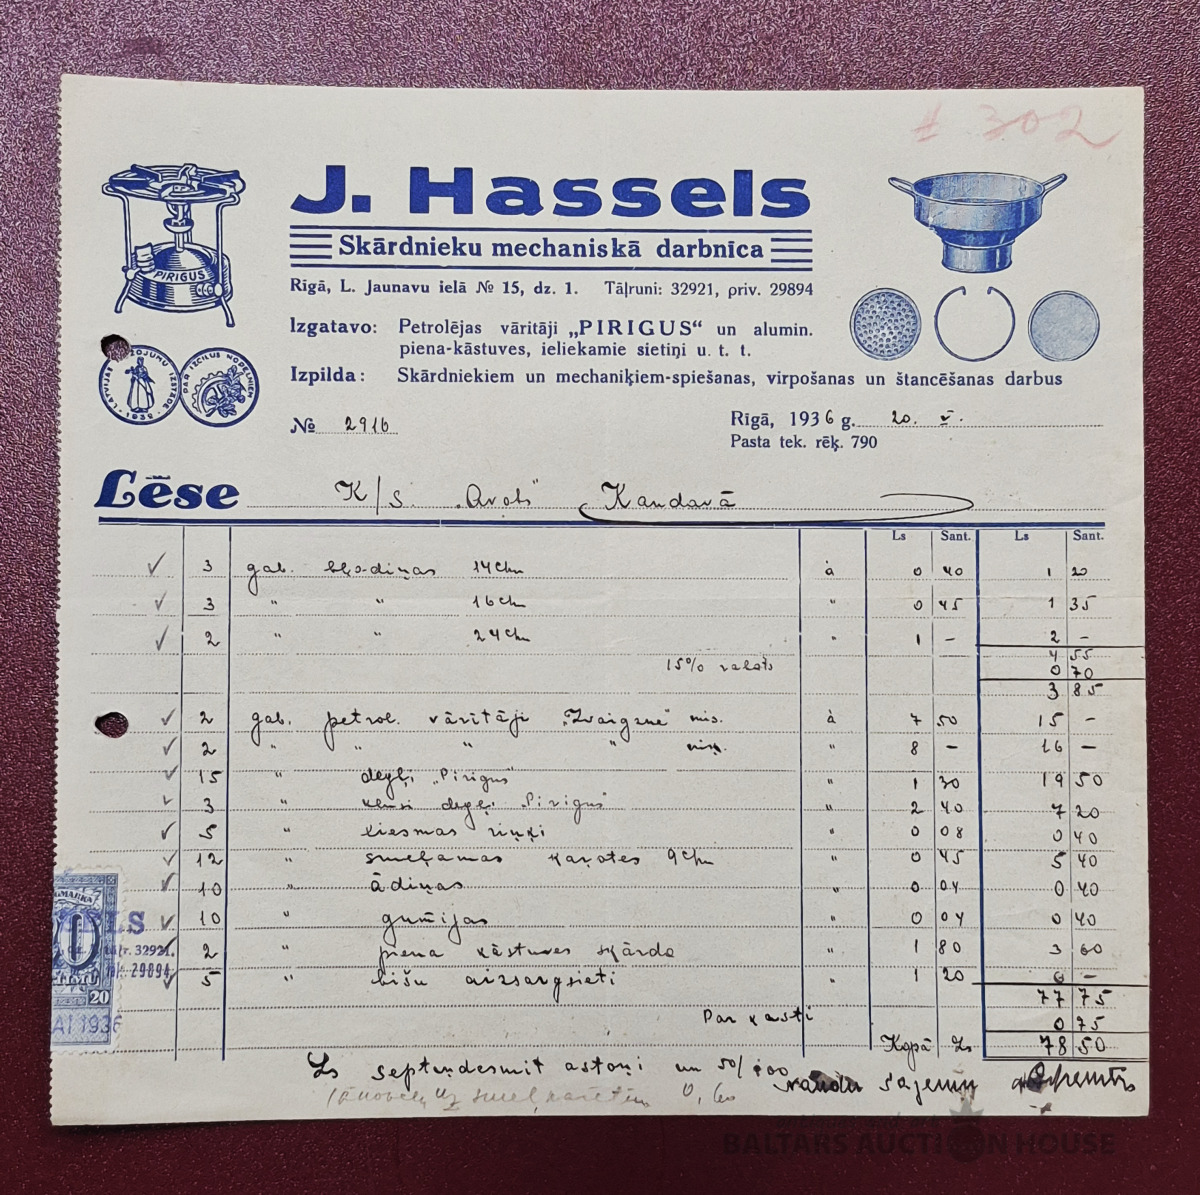 # 302
J. Hassels
Skārdnieku mechaniskā darbnīca
Rīgā, L. Jaunavu ielā № 15, dz. 1. Tāļruni: 32921, priv. 29894
Izgatavo: Petrolējas vārītāji „PIRIGUS“ un alumin.
piena-kāstuves, ieliekamie sietiņi u. t. t.
Izpilda: Skārdniekiem un mechaniķiem-spiešanas, virpošanas un štancēšanas darbus
PIRIGUS
№ 2916
Rīgā, 1936 g. 20. V.
Pasta tek. rēķ. 790
Lēse K/S Kandavā
Ls Sant. Ls Sant.
3 gab. bļodiņas 14 cm à 0 40 1 20
3 " " 16 cm " 0 45 1 35
2 " " 24 cm " 1 - 2 -
4 55
15% rabats 0 70
3 85
2 gab. petrol. vārītāji „Zvaigzne" mis. à 7 50 15 -
2 " " " " niķ. " 8 - 16 -
15 " degļi „Pirigus" " 1 30 19 50
3 " klusi degļi „Pirigus" " 2 40 7 20
5 " liesmas riņķi " 0 08 0 40
12 " smeļamas kaņotes 9 cm " 0 45 5 40
10 " ādiņas " 0 04 0 40
10 " gumijas " 0 04 0 40
2 " piena kāstuves skārda " 1 80 3 60
5 " bišu aizsargsieti " 1 20 6 -
77 75
Par kasti 0 75
Kopā Ls 78 50
Ls septiņdesmit astoņi un 50/100 naudu saņēmu
0,60
32921.
29894
20
1936
BALTARS AUCTION HOUSE